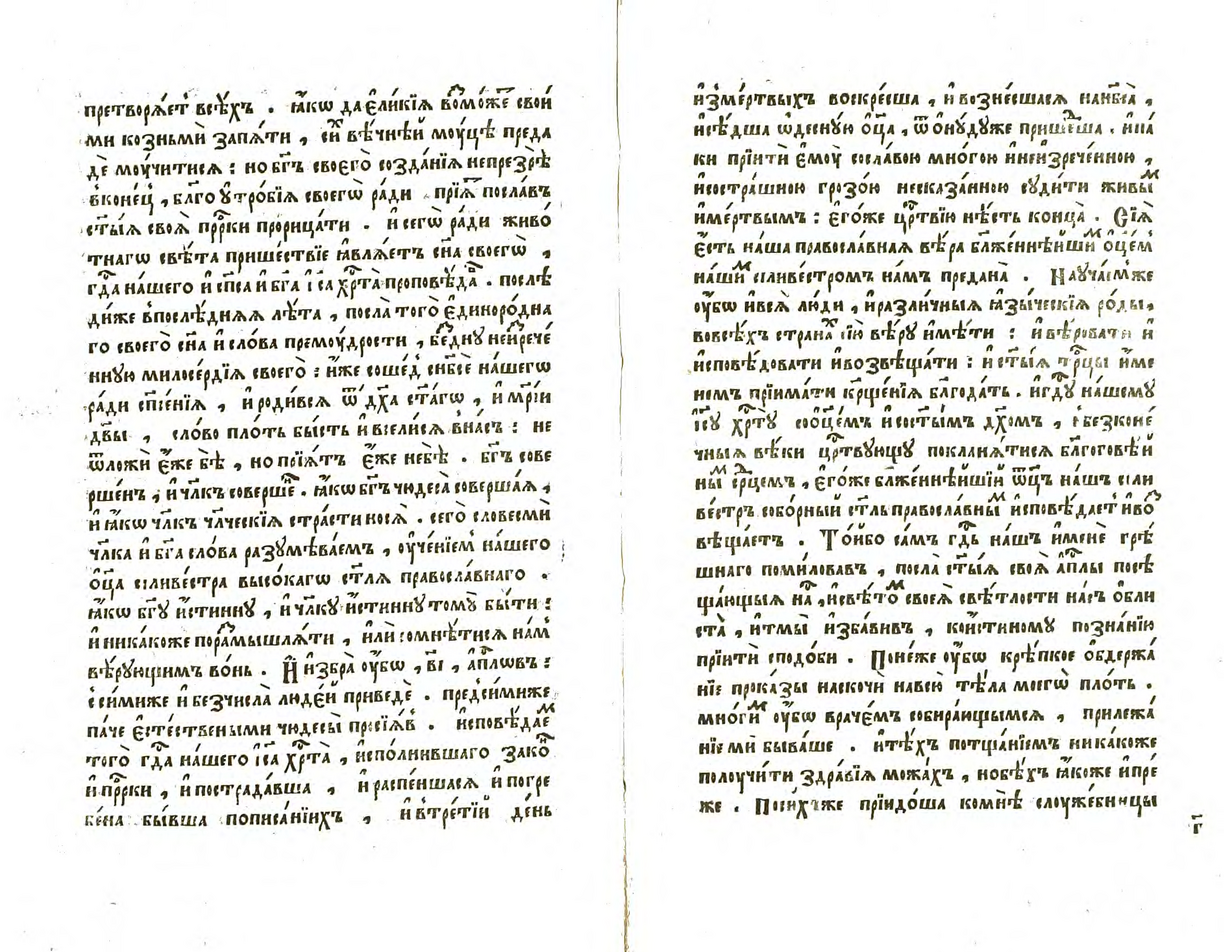 претворѧ́етъ всѣ́хъ . ꙗ҆́кѡ да є҆ли́кїѧ во́мо́же свои́
ми ко́зньми запѧ́ти , си́ вѣ́чнѣй мꙋ́цѣ преда
дѐ моучи́тисѧ : но бг҃ъ своегѡ̀ созда́нїѧ непрезрѣ̀
вконе́ц , бл҃гоꙋ҆тро́бїѧ своегѡ̀ ра́ди . прїѧ́ посла́въ
ст҃ы́ѧ своѧ̀ прⷪ҇рки прорица́ти . и҆ сегѡ̀ ра́ди живо́
тнагѡ свѣ́та прише́ствїе ꙗ҆влѧ́етъ сн҃а своегѡ̀ ,
гдⷭ҇а на́шего и҆ сп҃са и҆ бг҃а і҆са хрⷭ҇та̀ проповѣ́да . послѣ̀
ди́же впослѣ́днѧѧ лѣ́та , посла̀ того̀ є҆диноро́дна
го своего̀ сн҃а и҆ сло́ва премоу́дрости , бе́днꙋ неи҆рече́
ннꙋю милосе́рдїѧ своего̀ : и҆́же соше́д снб҃сѐ на́шегѡ
ра́ди сп҃се́нїѧ , и҆ роди́всѧ ѿ дх҃а ст҃а́гѡ , и҆ мр҃і́и
дв҃ы , сло́во пло́ть бы́сть и҆ всели́сѧ вна́съ : не
ѿложѝ є҆́же бѣ̀ , но прїѧ́тъ є҆́же небѣ̀ . бг҃ъ сове
рше́нъ , и҆ чл҃къ соверше́ . ꙗ҆́кѡ бг҃ъ чюдеса̀ соверша́ѧ ,
и҆ ꙗ҆́кѡ чл҃къ чл҃ческїѧ стра́сти носѧ̀ . сего̀ словесмѝ
чл҃ка и҆ бг҃а сло́ва разꙋмѣва́емъ , оу҆че́нїем на́шего
о҆ц҃а̀ силиве́стра высо́кагѡ ст҃лѧ правосла́внаго .
ꙗ҆́кѡ бг҃ꙋ и҆́стиннꙋ , и҆ чл҃кꙋ и҆́стиннꙋ томꙋ̀ бы́ти :
и҆ ника́коже пора́мышлѧ́ти , и҆лѝ сомнѣ́тисѧ на́м
вѣ́рꙋющимъ во́нь . И҆ и҆збра̀ оу҆́бѡ , в҃і , а҆пⷭ҇лѡвъ :
с си́миже и҆ безчисла̀ люде́й приведѐ . предси́миже
па́че є҆сте́ствеными чюдесы̀ просїѧ́в . и҆сповѣ́дае
того̀ гдⷭ҇а на́шего і҆са хрⷭ҇та̀ , и҆спо́лнившаго зако́
и҆ прⷪ҇рки , и҆ пострада́вша , и҆ распе́ншасѧ и҆ погре
бе́на бы́вша пописа́нїихъ , и҆ втре́тїй де́нь
и҆зме́ртвыхъ воскре́сша , и҆ вознѐсшасѧ нанб҃са̀ ,
и҆сѣ́дша ѡ҆деснꙋ́ю о҆ц҃а̀ , ѿѻ҆нꙋ́дꙋже прише́ша . и҆ па́
ки прїитѝ є҆мꙋ̀ сосла́вою мно́гою и҆неи҆зрече́нною ,
и҆состра́шною грозо́ю несказа́нною сꙋди́ти живы̀м
и҆ме́ртвымъ : є҆го́же црⷭ҇твїю нѣ́сть конца̀ . Сїѧ̀
є҆́сть на́ша правосла́внаѧ вѣ́ра бл҃же́ннѣйшим о҆ц҃е́м
на́шим силиве́стромъ на́мъ предана̀ . Наꙋча́имже
оу҆́бѡ и҆всѧ̀ лю́ди , и҆разли́чныѧ ꙗ҆зы́ческїѧ ро́ды,
вовсѣ́хъ страна́х сїю̀ вѣ́рꙋ и҆мѣ́ти : и҆ вѣ́ровати и҆
и҆сповѣ́довати и҆возвѣща́ти : и҆ ст҃ы́ѧ трⷪ҇цы и҆́ме
немъ прїима́ти кр҃ще́нїѧ бл҃года́ть . и҆ гдⷭ҇ꙋ на́шемꙋ
і҆сꙋ хрⷭ҇тꙋ̀ соо҆ц҃е́мъ и҆сост҃ы́мъ дх҃омъ , в безконе́
чныѧ вѣ́ки црⷭ҇твꙋющꙋ поклани́ѧтисѧ бл҃гоговѣ́й
ным срⷣцемъ , є҆го́же бл҃же́ннѣйшїй ѻ҆ц҃ъ на́шъ сили
ве́стръ собо́рный ст҃ль правосла́вным и҆сповѣ́даетъ и҆во́
вѣща́етъ . То́йбо са́мъ гдⷭ҇ь на́шъ и҆менѐ грѣ́
шнаго поми́ловавъ , посла̀ ст҃ы́ѧ своѧ̀ а҆пⷭ҇лы посѣ
ща́ющыѧ на́ , и҆свѣ́том своеѧ̀ свѣ́тлости на́съ ѡ҆бли
ста̀ , и҆тмы̀ и҆зба́вивъ , кои҆́стиномꙋ позна́нїю
прїитѝ сподо́би . Поне́же оу҆́бѡ крѣ́пкое ѡ҆бдержа́
нїе прока́зы наскочѝ навсю̀ тѣ́ла моегѡ̀ пло́ть .
мно́гим оу҆́бѡ враче́мъ собира́ющымсѧ , прилежа́
нїе мѝ быва́ше . и҆тѣ́хъ потща́нїемъ ника́коже
полоучи́ти здра́вїѧ можа́хъ , нобѣ́хъ ꙗ҆́коже и҆пре́
же . Поси́хъже прїидо́ша комнѣ̀ слꙋже́бницы
г҃